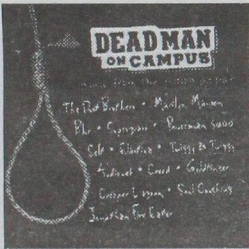 DEAD MAN
ON CAMPUS
music from the motion picture
The Dust Brothers • Marilyn Manson
Blur • Supergrass • Powerman 5000
Self • Elastica • Twiggy & Twiggy
Audioweb • Creed • Goldfinger
Creeper Lagoon • Soul Coughing
Jonathan Fire Eater